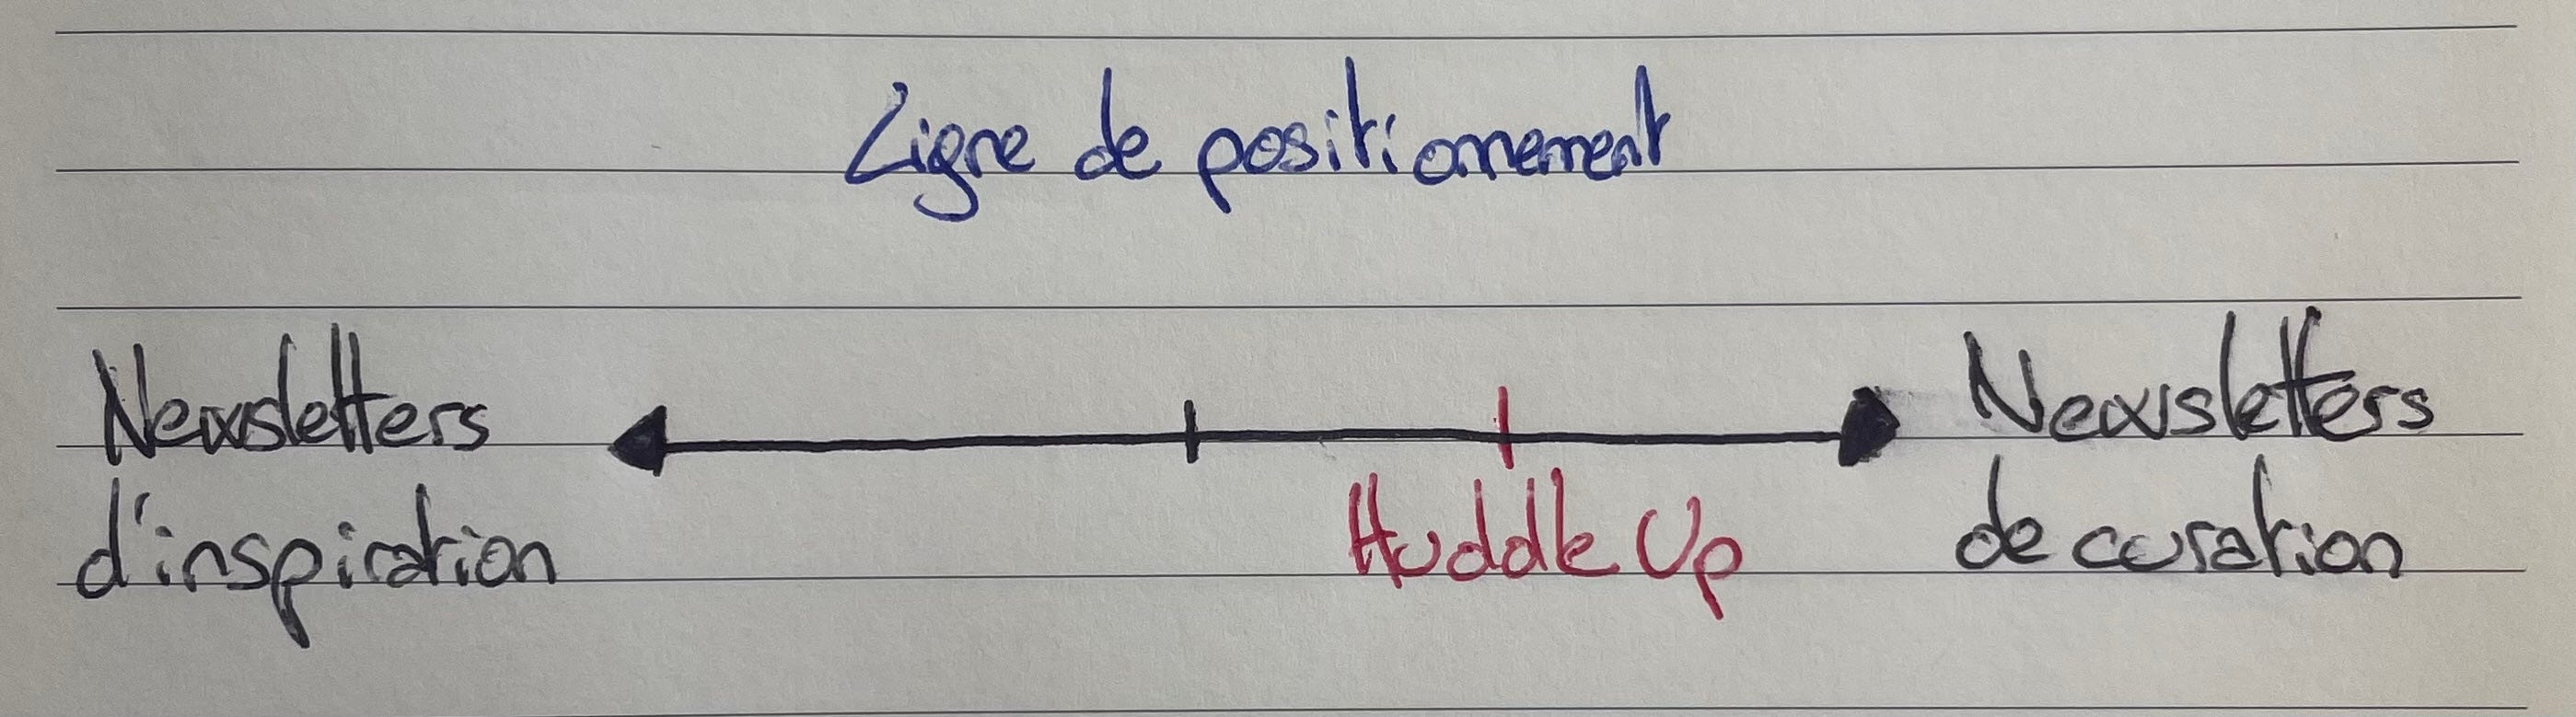 Ligne de positionnement
Newsletters
d'inspiration
Huddle Up
Newsletters
de curation